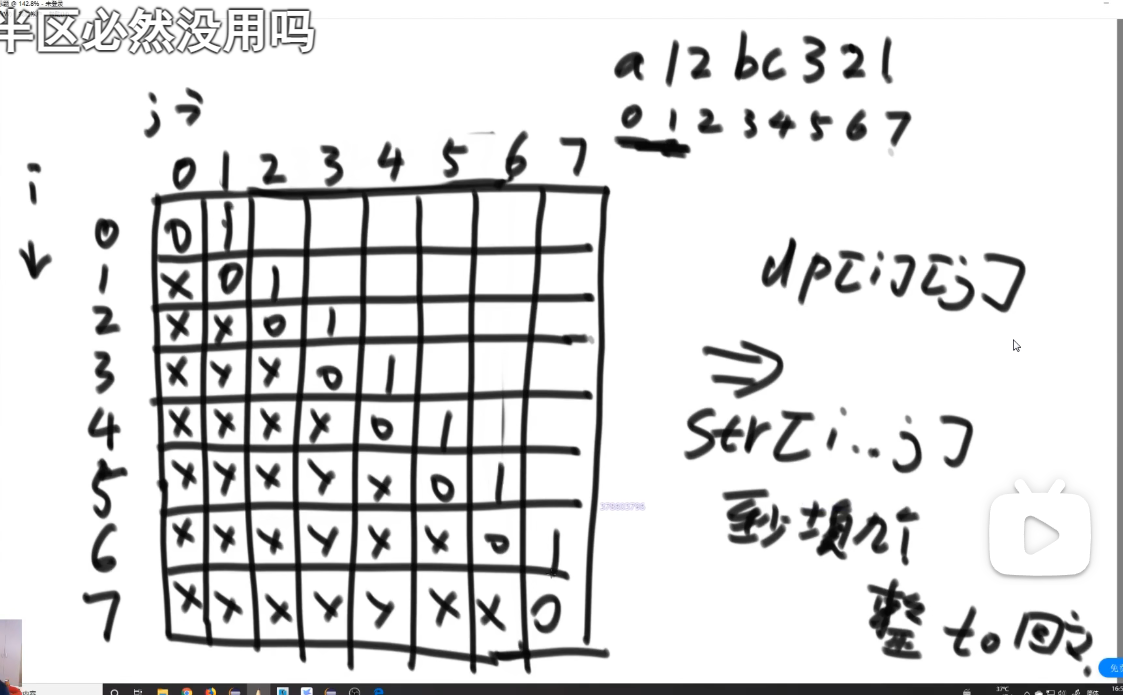 半区必然没用吗
a 1 2 b c 3 2 1
0 1 2 3 4 5 6 7
j →
i ↓
0 1 2 3 4 5 6 7
0 0 1
1 X 0 1
2 X X 0 1
3 X X X 0 1
4 X X X X 0 1
5 X X X X X 0 1
6 X X X X X X 0 1
7 X X X X X X X 0
dp[i][j]
⇒
str[i..j]
至少填几个
整to回文